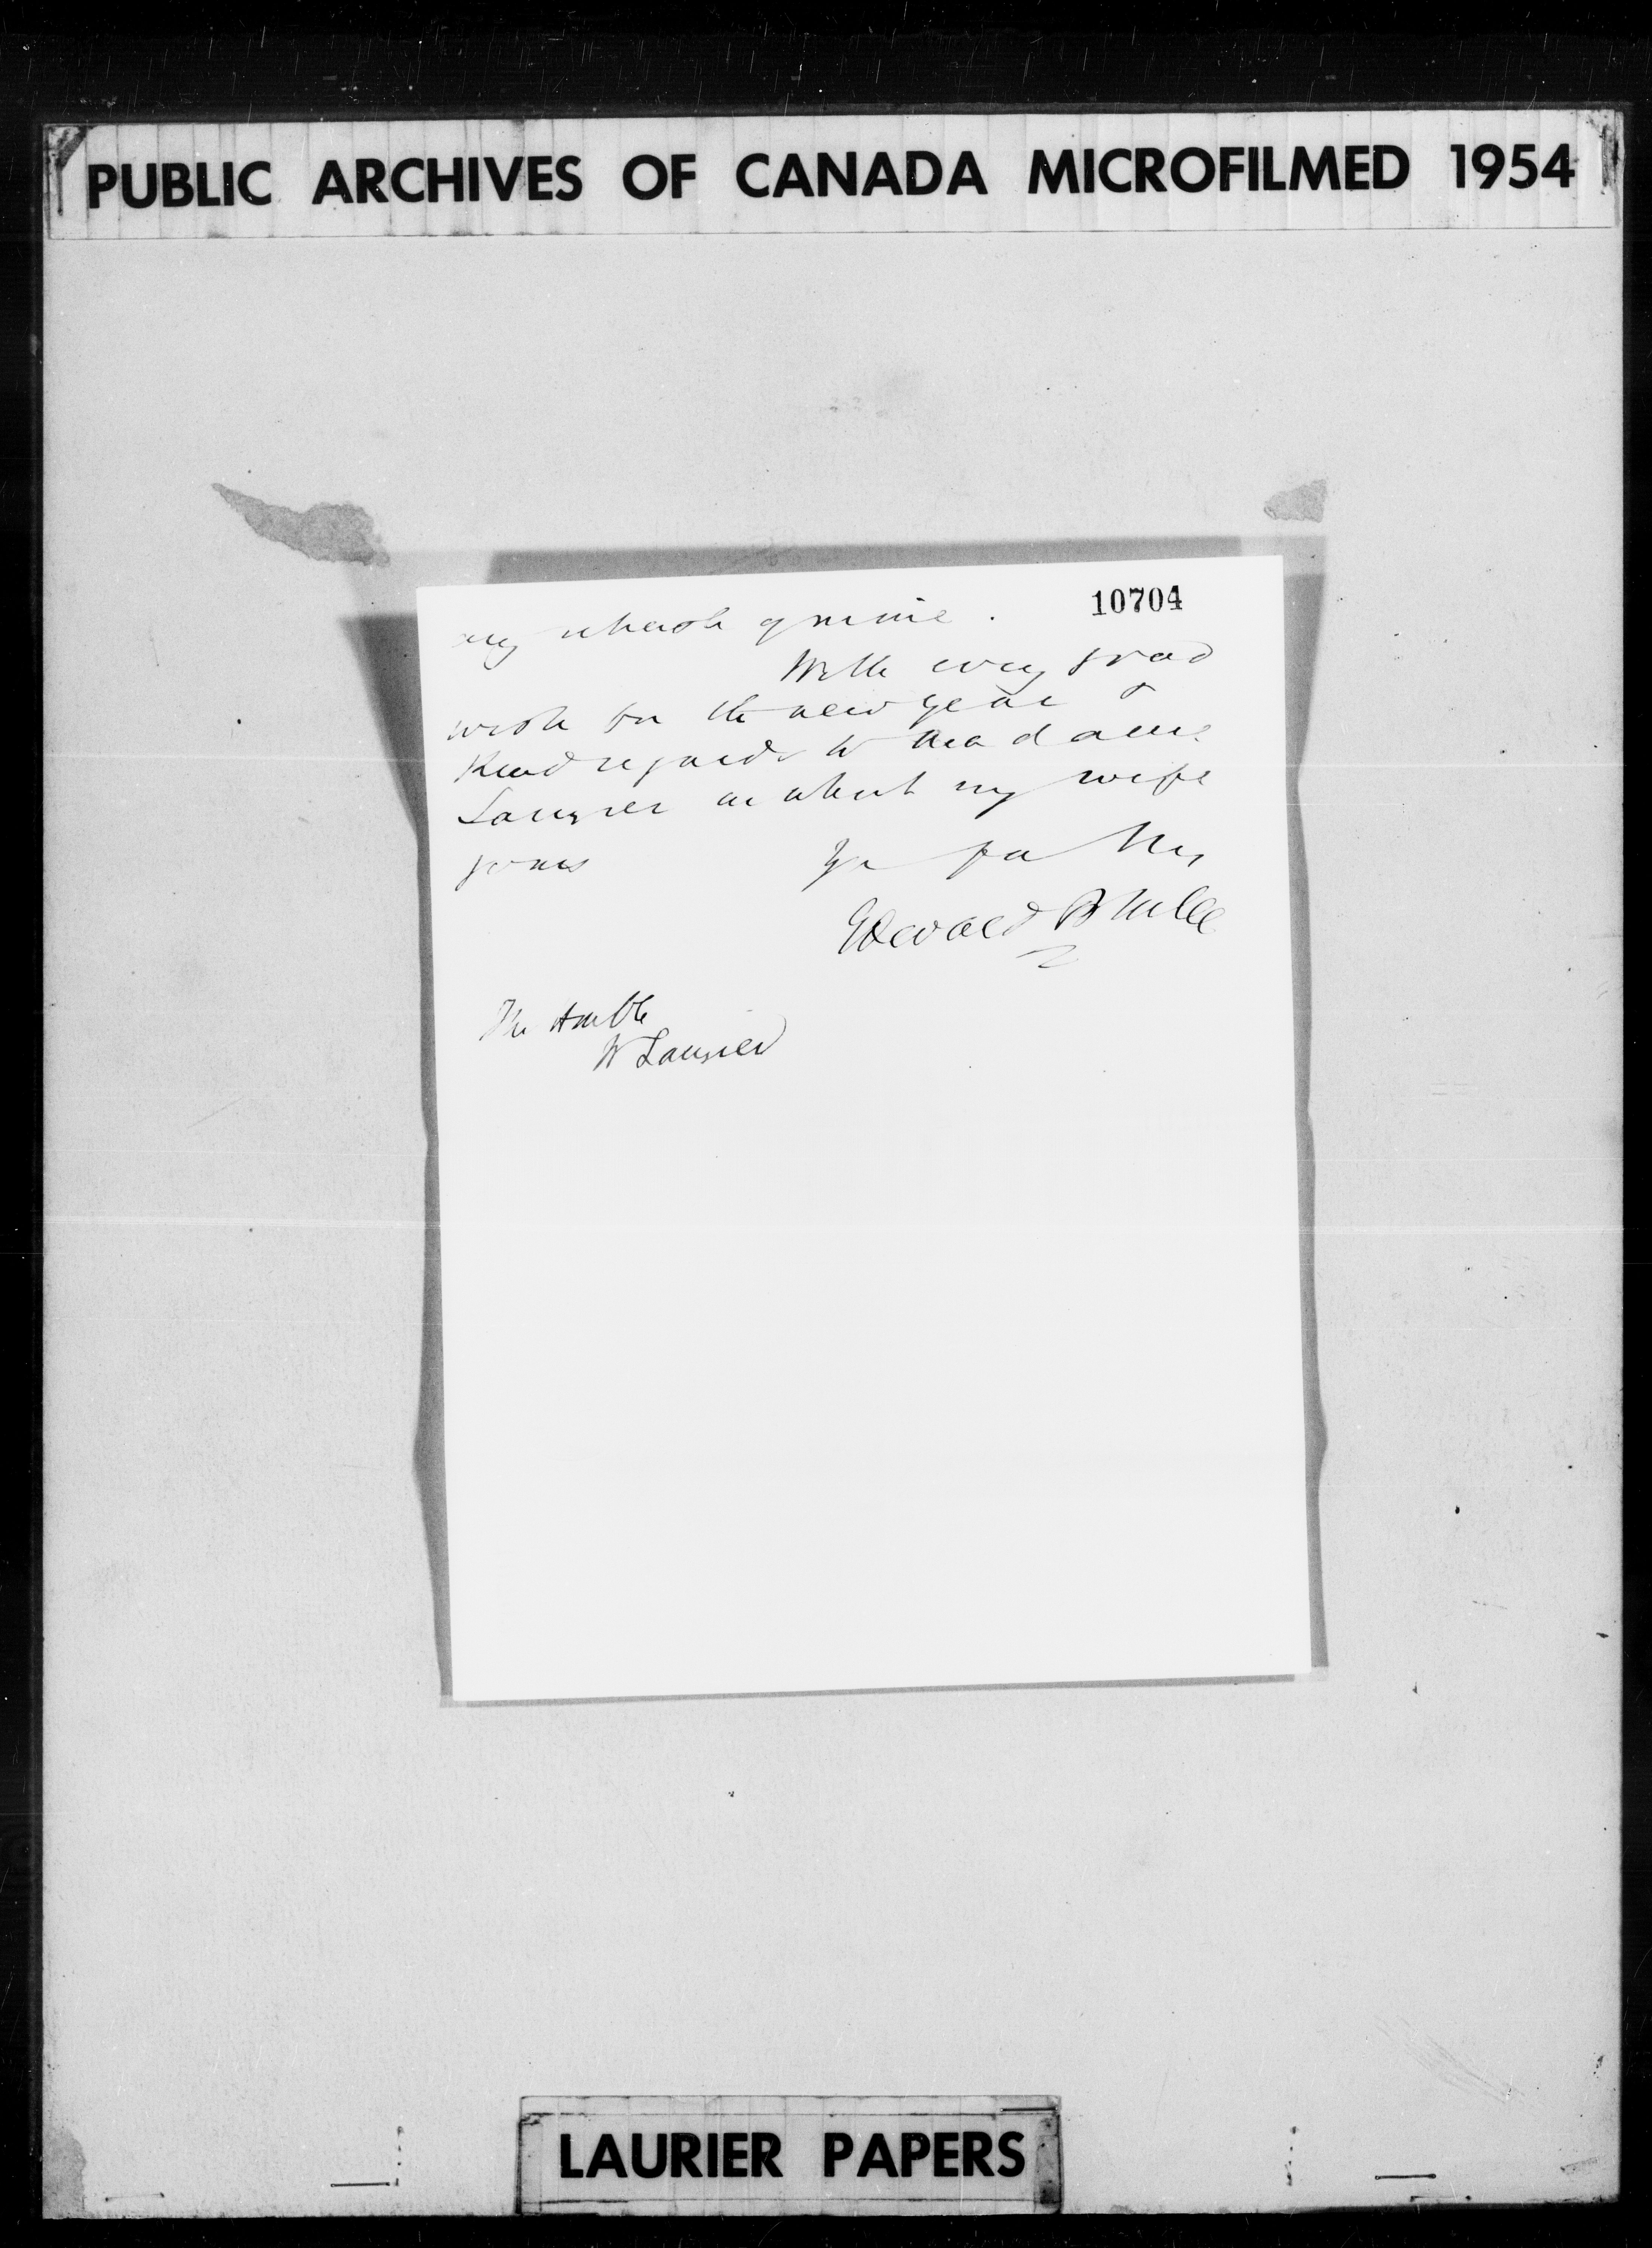 PUBLIC ARCHIVES OF CANADA MICROFILMED 1954
10704
any of mine.
With every good
wish for the new year &
Kind regards to Madame
Laurier in which my wife
joins
Yrs faithy
Edward Blake
The Honble
W Laurier
LAURIER PAPERS